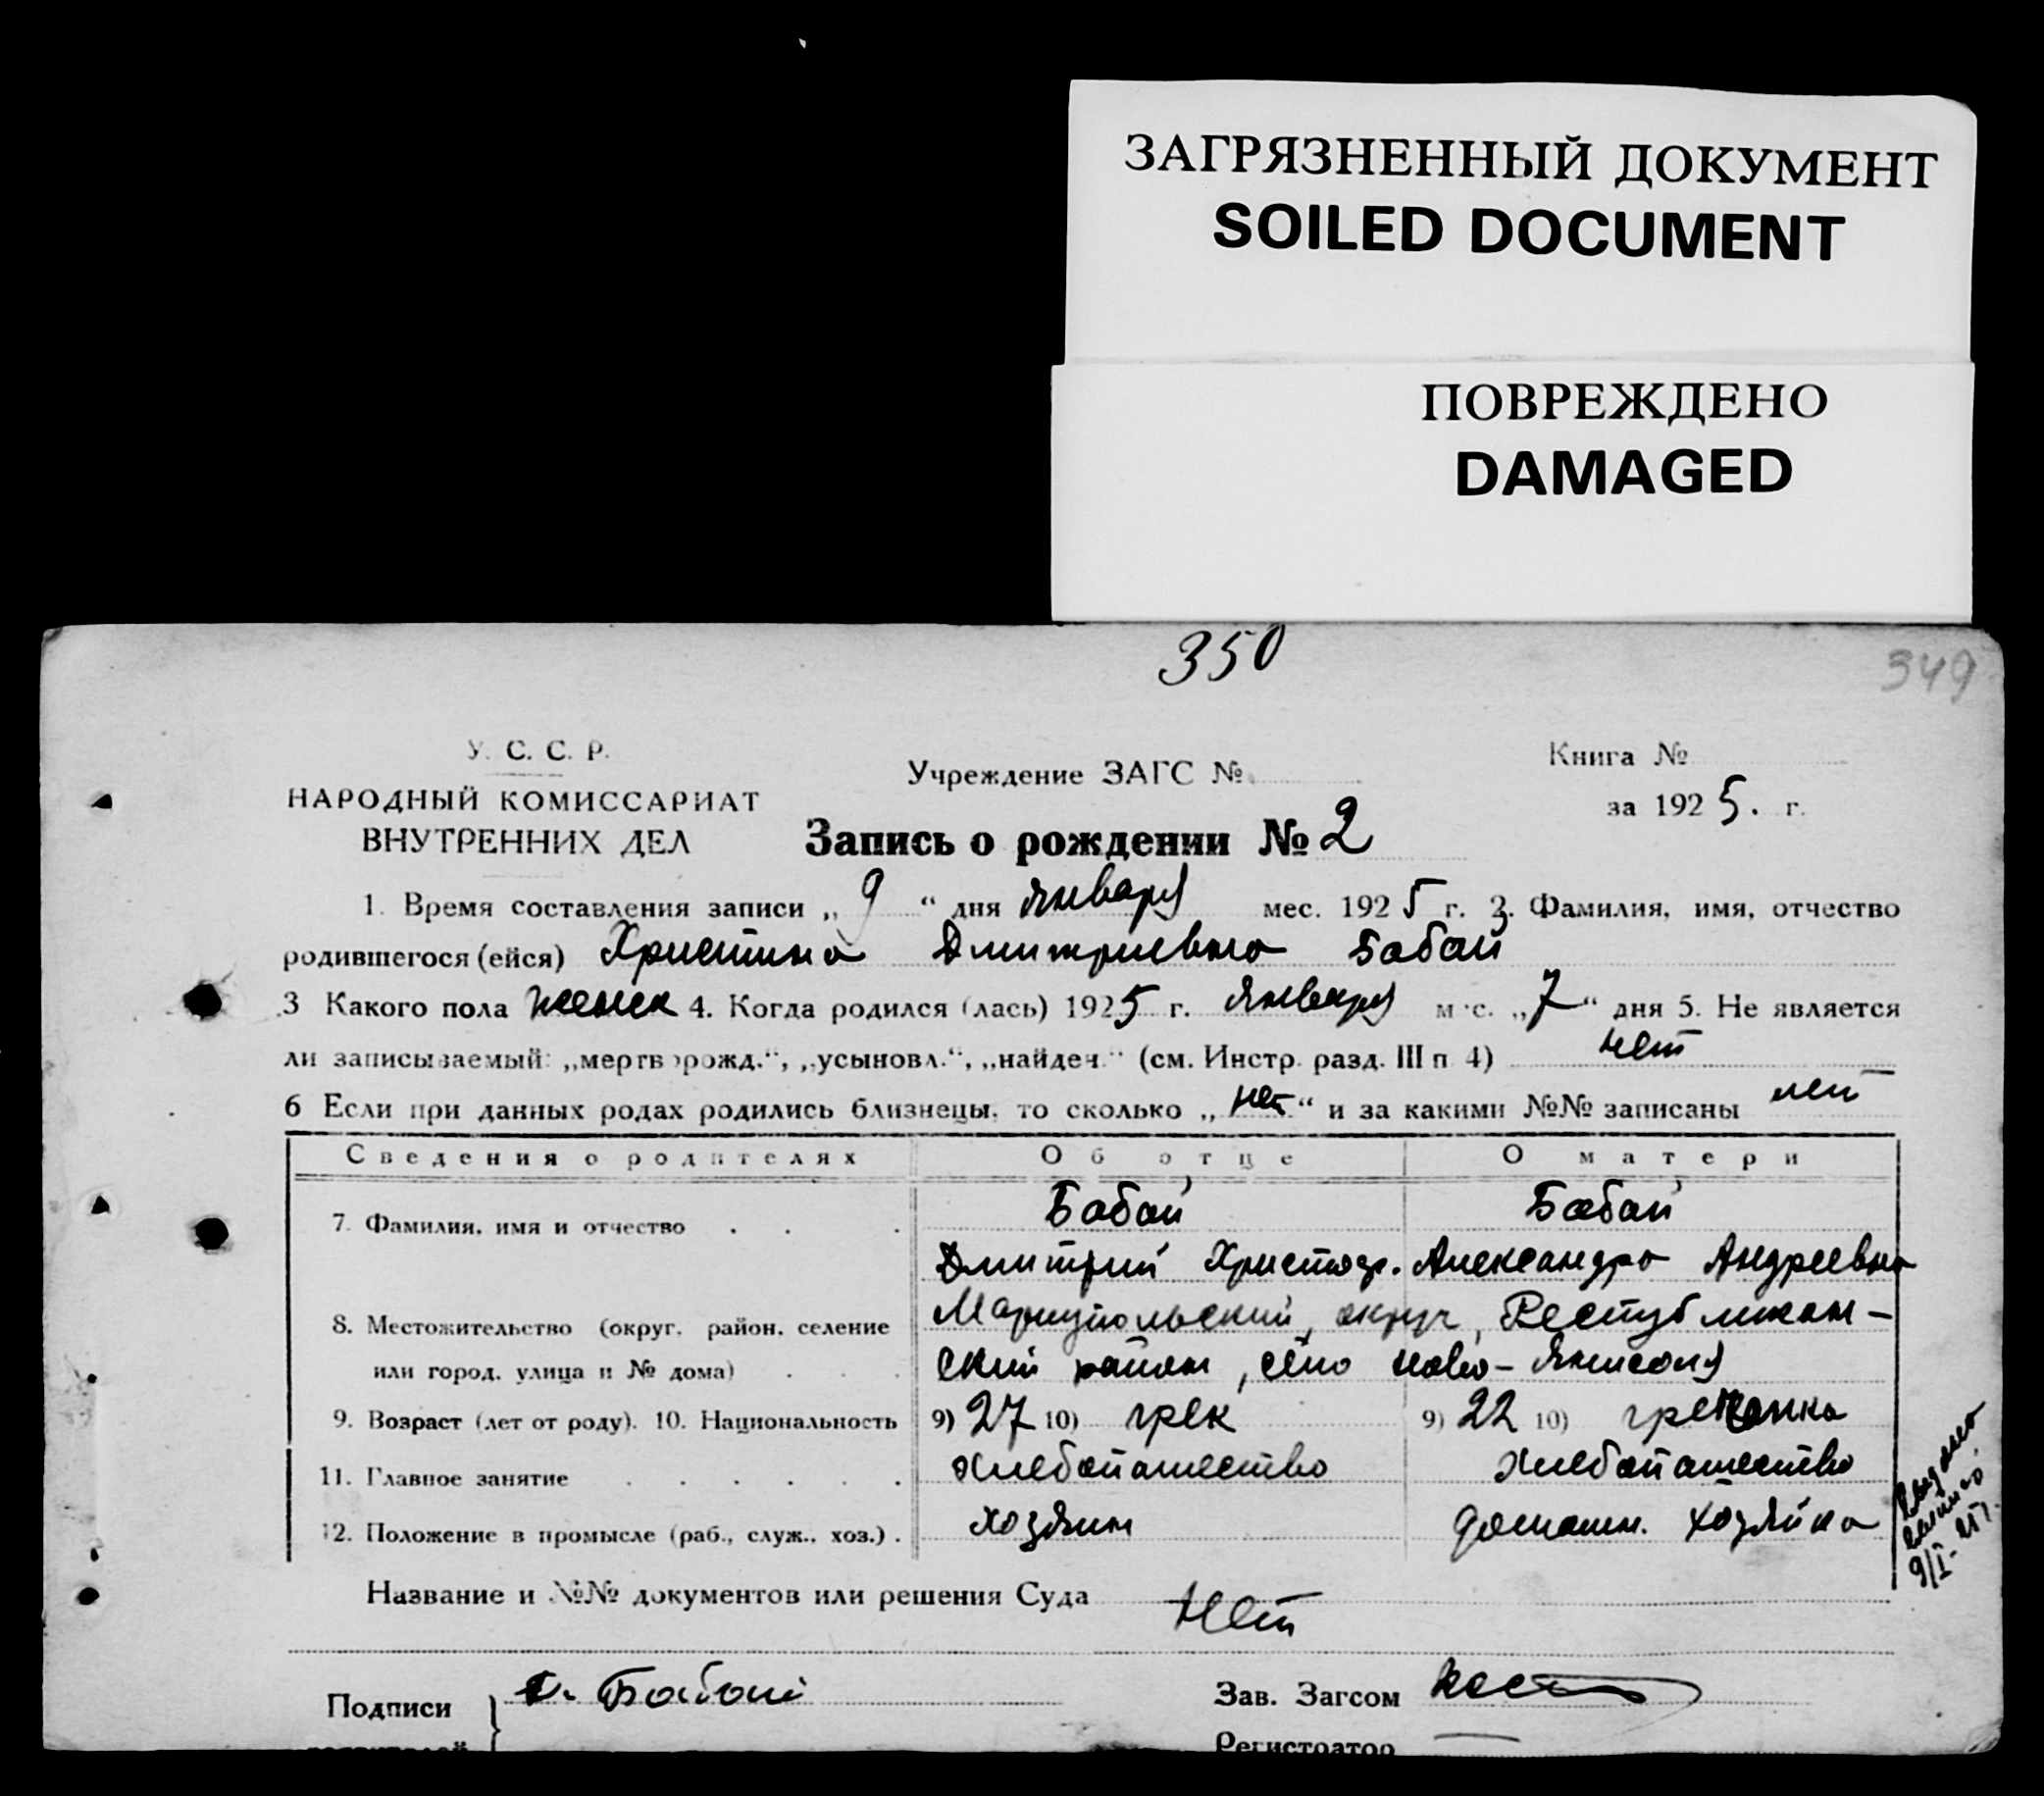 ЗАГРЯЗНЕННЫЙ ДОКУМЕНТ
SOILED DOCUMENT
ПОВРЕЖДЕНО
DAMAGED
350
349
У. С. С. Р.
НАРОДНЫЙ КОМИССАРИАТ
ВНУТРЕННИХ ДЕЛ
Учреждение ЗАГС №
Книга №
за 1925. г.
Запись о рождении № 2
1. Время составления записи „9“ дня января мес. 1925 г. 2. Фамилия, имя, отчество
родившегося (ейся) Христина Дмитриевна Бабай
3 Какого пола женск 4. Когда родился (лась) 1925 г. января мес. „7“ дня 5. Не является
ли записываемый: „мертворожд.“, „усыновл.“, „найден.“ (см. Инстр. разд. III п 4) нет
6 Если при данных родах родились близнецы, то сколько „нет“ и за какими №№ записаны нет
Сведения о родителях Об отце О матери
7. Фамилия, имя и отчество Бабай Бабай
Дмитрий Христоф. Александра Андреевна
8. Местожительство (округ, район, селение Мариупольский округ, Республикан-
или город, улица и № дома) ский район, село Ново-Янисоля
9. Возраст (лет от роду). 10. Национальность 9) 27 10) грек 9) 22 10) гречанка
11. Главное занятие хлебопашество хлебопашество
12. Положение в промысле (раб., служ., хоз.) хозяин домашн. хозяйка
9/I-25 г.
Название и №№ документов или решения Суда нет
Подписи Бабай
Зав. Загсом
Регистратор